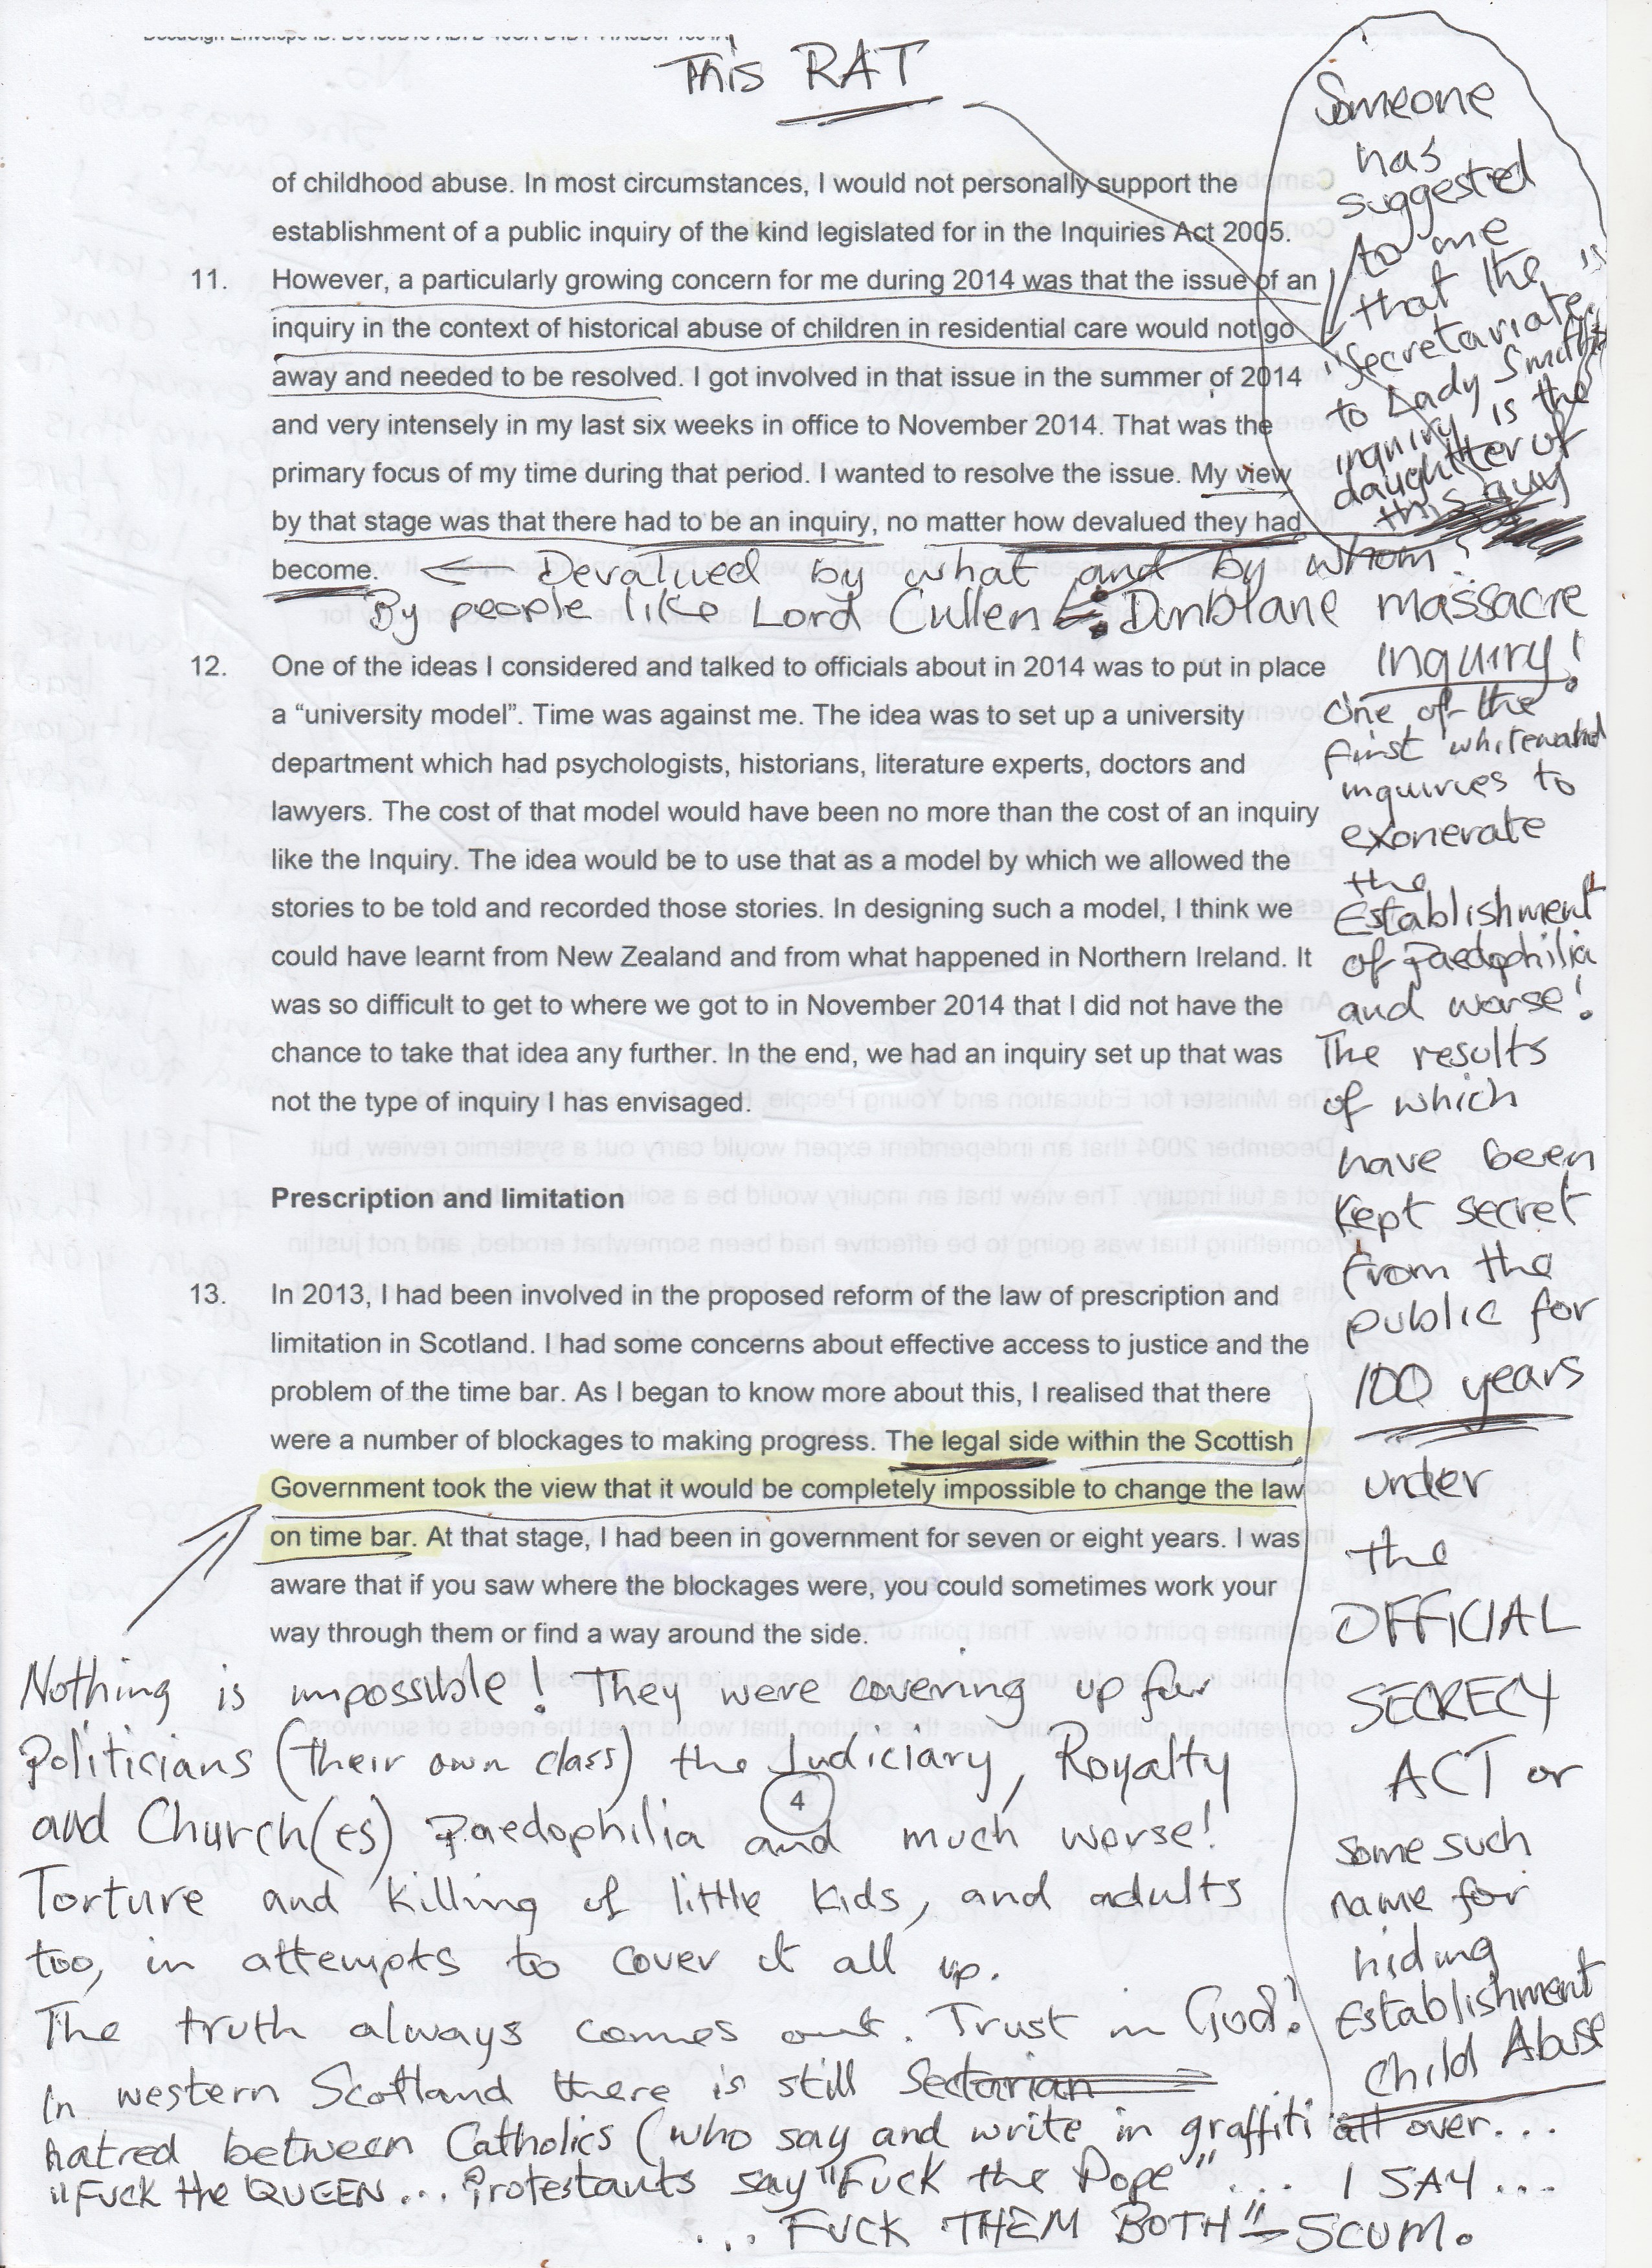 This RAT
of childhood abuse. In most circumstances, I would not personally support the
establishment of a public inquiry of the kind legislated for in the Inquiries Act 2005.
11. However, a particularly growing concern for me during 2014 was that the issue of an
inquiry in the context of historical abuse of children in residential care would not go
away and needed to be resolved. I got involved in that issue in the summer of 2014
and very intensely in my last six weeks in office to November 2014. That was the
primary focus of my time during that period. I wanted to resolve the issue. My view
by that stage was that there had to be an inquiry, no matter how devalued they had
become.
Someone
has
suggested
to me
that the
"Secretariate"
to Lady Smith
inquiry is the
daughtter of
this guy
← Devalued by what and by whom?
By people like Lord Cullen Dunblane massacre
inquiry!
12. One of the ideas I considered and talked to officials about in 2014 was to put in place
a “university model”. Time was against me. The idea was to set up a university
department which had psychologists, historians, literature experts, doctors and
lawyers. The cost of that model would have been no more than the cost of an inquiry
like the Inquiry. The idea would be to use that as a model by which we allowed the
stories to be told and recorded those stories. In designing such a model, I think we
could have learnt from New Zealand and from what happened in Northern Ireland. It
was so difficult to get to where we got to in November 2014 that I did not have the
chance to take that idea any further. In the end, we had an inquiry set up that was
not the type of inquiry I has envisaged.
Prescription and limitation
13. In 2013, I had been involved in the proposed reform of the law of prescription and
limitation in Scotland. I had some concerns about effective access to justice and the
problem of the time bar. As I began to know more about this, I realised that there
were a number of blockages to making progress. The legal side within the Scottish
Government took the view that it would be completely impossible to change the law
on time bar. At that stage, I had been in government for seven or eight years. I was
aware that if you saw where the blockages were, you could sometimes work your
way through them or find a way around the side.
One of the
first
inquiries to
exonerate
the
Establishment
of Paedophilia
and worse!
The results
of which
have been
kept secret
from the
public for
100 years
under
the
OFFICIAL
SECRECY
ACT or
some such
name for
hiding
Establishment
Child Abuse
Nothing is impossible! They were covering up for
Politicians (their own class) the Judiciary, Royalty
4
and Church(es) Paedophilia and much worse!
Torture and killing of little kids, and adults
too, in attempts to cover it all up.
The truth always comes out. Trust in God!
In western Scotland there is still Sectarian
hatred between Catholics (who say and write in graffiti all over...
"FUCK the QUEEN... Protestants say "Fuck the Pope"... I SAY...
... FUCK THEM BOTH" SCUM.